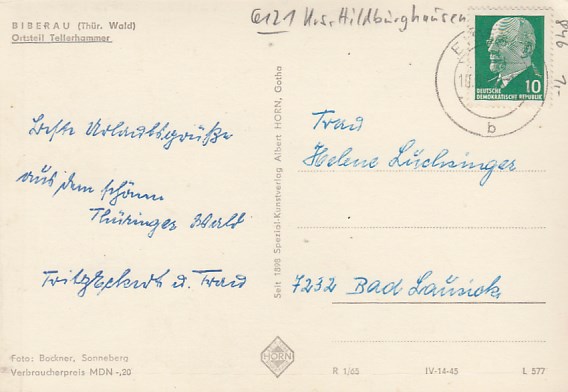 BIBERAU (Thür. Wald)
Ortsteil Tellerhammer
6121 Krs. Hildburghausen
846 1,-
DEUTSCHE
DEMOKRATISCHE REPUBLIK
10
b
Beste Urlaubsgrüße
aus dem schönen
Thüringer Wald
Fritz u. Frau
Seit 1898 Spezial-Kunstverlag Albert HORN, Gotha
Frau
Helene Lüchsinger
7232 Bad Lausick
Foto: Backner, Sonneberg
Verbraucherpreis MDN -,20
HORN
R 1/65 IV-14-45 L 577